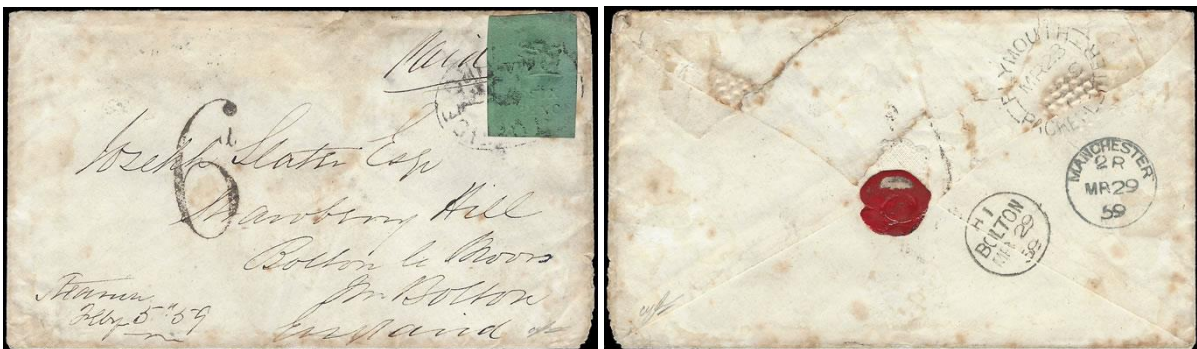 Paid
6d
Joseph Slater Esqr
Hill
Bolton le Moors
Nr Bolton
England
Steamer
Feby 5th 59
PLYMOUTH
MR 28
PACKET LETTER
MANCHESTER
2R
MR 29
59
H 1
BOLTON